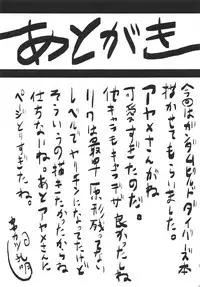 あとがき
今回はガンダムビルドダイバーズ本
描かせてもらいました。
アヤメさんがね
可愛すぎたのだ。
他キャラもキャラデザ良かったしね
リクは最早原形残ってない
レベルでヤ
そういうの描きたかったからね
仕方ないね。あとアヤメさんに
ページとりすぎたね。